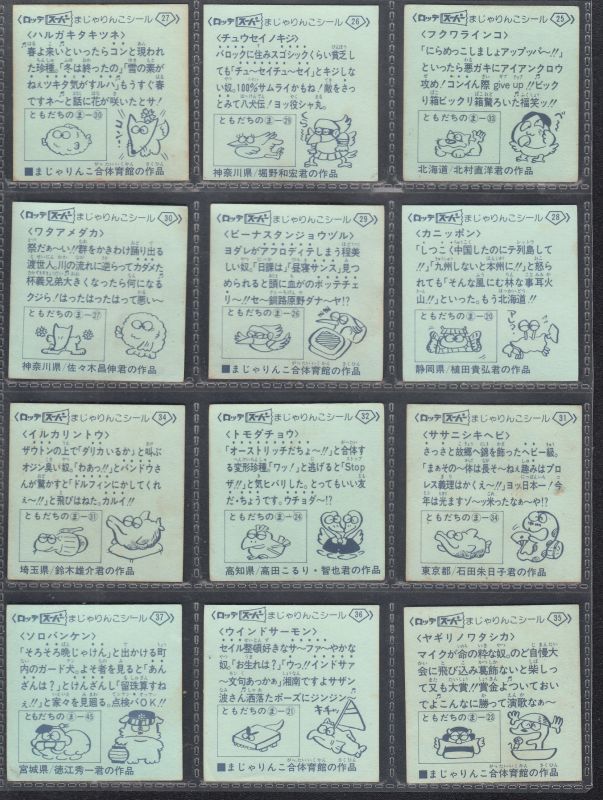 ロッテ スーパー まじゃりんこシール 27
<ハルガキタキツネ>
春よ来いといったらコンと現われ
た珍種。「冬は終ったの」「雪の葉が
ねえツキタ気がすルハ」もうすぐ春
ですネ〜と話に花が咲いたとサ!
ともだちのま―30
■まじゃりんこ合体育館の作品
ロッテ スーパー まじゃりんこシール 26
<チュウセイノキジ>
バロックに住みスゴシックくらい貧乏し
ても「チューセイチューセイ」とキジしな
い奴。100%サムライかもね「敵をさっ
とみて八犬伝」ヨッ役シャ丸。
ともだちのま―29
神奈川県/堀野和宏君の作品
ロッテ スーパー まじゃりんこシール 25
<フクワラインコ>
「にらめっこしましょアップッパ〜!!」
といったら悪ガキにアイアンクロウ
攻め!コンイん際 give up!!ビック
リ箱ビックリ箱驚ろいた福笑ッ!!
ともだちのま―33
北海道/北村直洋君の作品
ロッテ スーパー まじゃりんこシール 30
<ワタアメダカ>
祭だぁ〜い!!群をかきわけ踊り出る
渡世人。川の流れに逆らってカダメた
杯義兄弟大きくなったら何になる
クジら!はったはったはって悪い〜
ともだちのま―27
神奈川県/佐々木昌伸君の作品
ロッテ スーパー まじゃりんこシール 29
<ビーナスタンジョウヅル>
ヨダレがアフロディテしまう程美
しい奴。「日課は」「昼寝サンス」見つ
められると頭に血がのボッテチェ
リ〜!!セ〜釧路原野ダナ〜ヤ!?
ともだちのま―26
■まじゃりんこ合体育館の作品
ロッテ スーパー まじゃりんこシール 28
<カニッポン>
「しつこく中国したのにテ列島して
!!」「九州しないと本州に!!」と怒ら
れても「そんな風にむ林な事耳火
山!!」といった。もう北海道!!
ともだちのま―20
静岡県/植田貴弘君の作品
ロッテ スーパー まじゃりんこシール 34
<イルカリントウ>
ザウトンの上で「ダリカいるか」と叫ぶ
オジン臭い奴。「わあっ!!」とパンドウさ
んが驚かすと「ドルフィンにかしてくれ
ぇ〜!!」と飛びはねた。カルイ!!
ともだちのま―31
埼玉県/鈴木雄介君の作品
ロッテ スーパー まじゃりんこシール 32
<トモダチョウ>
「オーストリッチだちょ〜!!」と合体す
る変形珍種。「ワッ!」と逃げると「Stop
ザ!!」と気とバリした。とってもいい友
だ・ちょうです。ウチョダ〜!?
ともだちのま―24
高知県/高田こるり・智也君の作品
ロッテ スーパー まじゃりんこシール 31
<ササニシキヘビ>
さっさと故郷へ錦を飾ったヘビー級。
「まぁその〜体は長そ〜ねぇ趣みはプロ
レス義理はかくえ〜!!」ヨッ日本一!今
年は光ますゾ〜ッ米ったなぁ〜や!?
ともだちのま―34
東京都/石田朱日子君の作品
ロッテ スーパー まじゃりんこシール 37
<ソロバンケン>
「そろそろ晩じゃけん」と出かける町
内のガード犬。よそ者を見ると「あん
ざんは?」とけんざんし「留珠算すね
ぇ!!」と家々を見廻る。点検バOK!!
ともだちのま―45
宮城県/徳江秀一君の作品
ロッテ スーパー まじゃりんこシール 36
<ウインドサーモン>
セイル整頓好きなサ〜ファ〜やかな
奴。「お生れは?」「ウっ!!インドサァ
〜文句あっかぁ」湘南ですよサザン
波さん洒落たポーズにジンジン〜
ともだちのま―21
キャッ
■まじゃりんこ合体育館の作品
ロッテ スーパー まじゃりんこシール 35
<ヤギリノワタシカ>
マイクが命の粋な奴。のど自慢大
会に飛び込み葛飾ないと柴しっ
て又も大賞!!賞金よっておい
てよこんなに勝って演歌なぁ〜
ともだちのま―23
■まじゃりんこ合体育館の作品